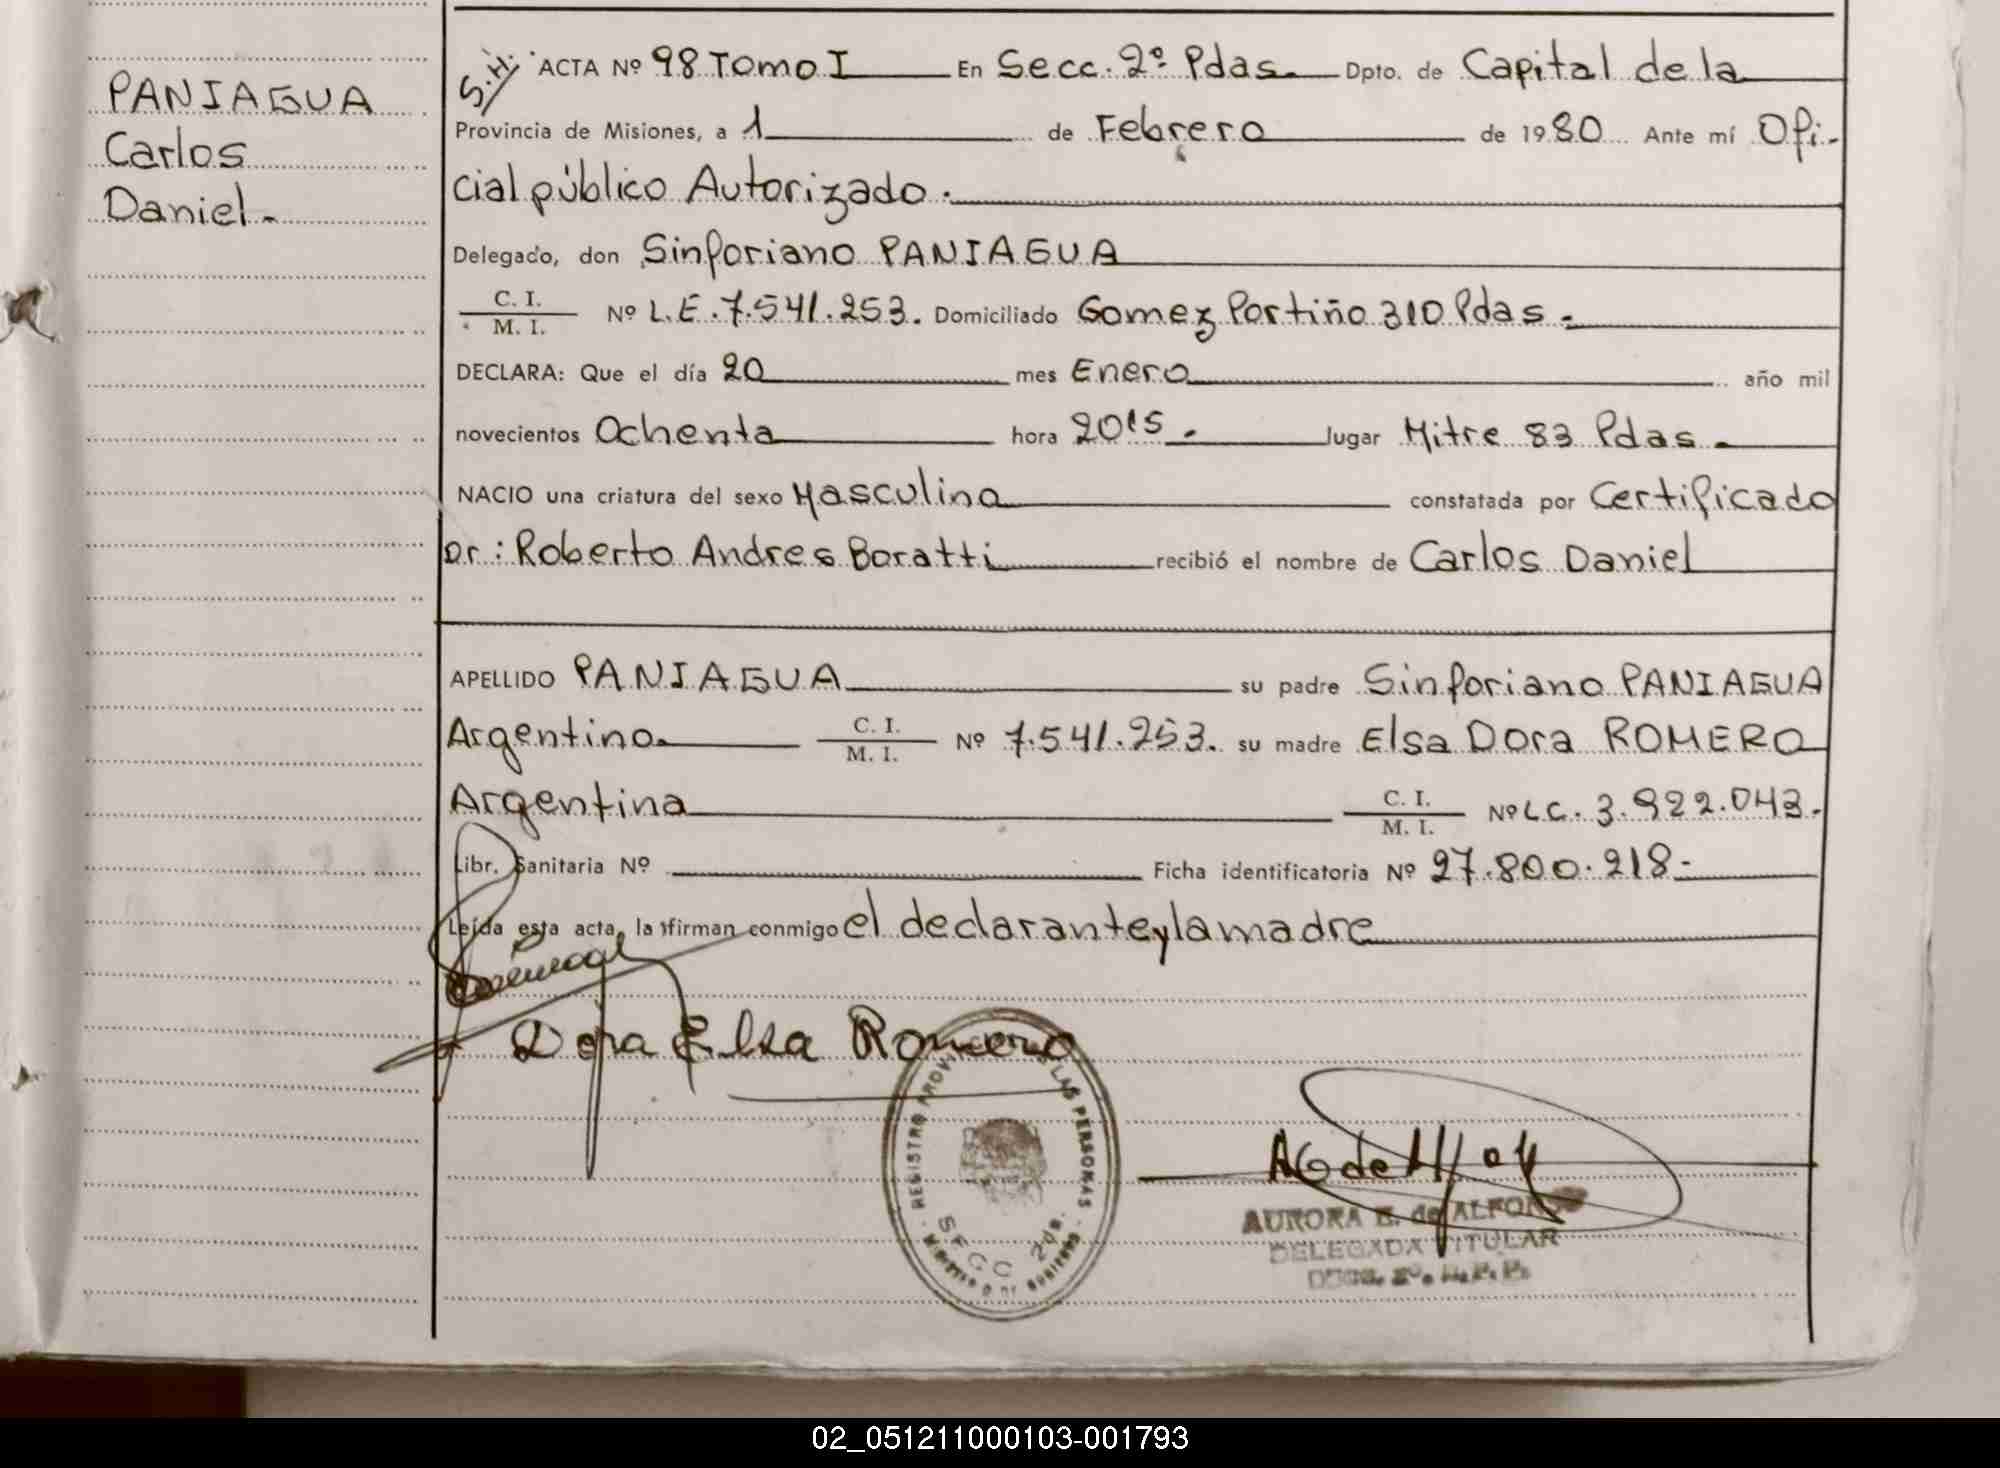 PANIAGUA
Carlos
Daniel.-
S.H. ACTA Nº 98 Tomo I En Secc. 2º Pdas. Dpto. de Capital de la
Provincia de Misiones, a 1 de Febrero de 1980 Ante mí Ofi-
cial público Autorizado.
Delegado, don Sinforiano PANIAGUA
C. I.
M. I. Nº L.E. 7.541.253. Domiciliado Gomez Portiño 310 Pdas.-
DECLARA: Que el día 20 mes Enero año mil
novecientos Ochenta hora 2015. lugar Mitre 83 Pdas.
NACIO una criatura del sexo Masculino constatada por Certificado
Dr.: Roberto Andres Boratti recibió el nombre de Carlos Daniel
APELLIDO PANIAGUA su padre Sinforiano PANIAGUA
Argentino. C. I.
M. I. Nº 7.541.253. su madre Elsa Dora ROMERO
Argentina C. I.
M. I. Nº L.C. 3.922.043.
Libr. Sanitaria Nº Ficha identificatoria Nº 27.800.218-
Leída esta acta, la firman conmigo el declarante y la madre
Dora Elsa Romero
REGISTRO PROV LAS PERSONAS
SECC 2da.
AURORA E. de ALFONSO
DELEGADA TITULAR
02_051211000103-001793